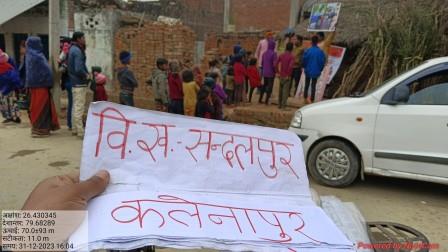 वि.ख.- सन्दलपुर
कलेनापुर
अक्षांश: 26.430345
देशान्तर: 79.68289
ऊंचाई: 70.0±93 m
सटीकता: 11.0 m
समय: 31-12-2023 16:04
Powered by NoteCam